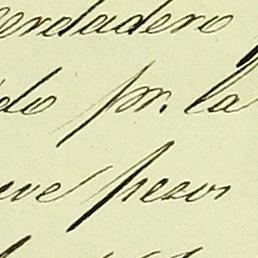 verdadero
do pr. la
eve pesos